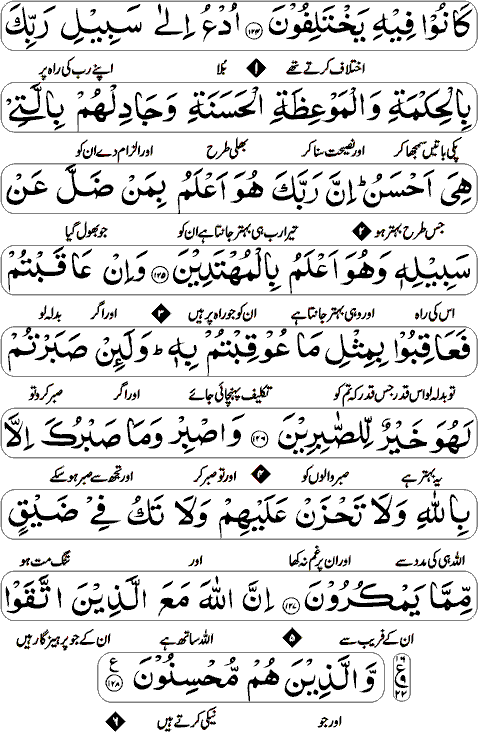 كَانُوْا فِيْهِ يَخْتَلِفُوْنَ ۝۱۲۴ اُدْعُ اِلٰى سَبِيْلِ رَبِّكَ
اختلاف کرتے تھے ۱ بُلا اپنے رب کی راہ پر
بِالْحِكْمَةِ وَالْمَوْعِظَةِ الْحَسَنَةِ وَجَادِلْهُمْ بِالَّتِيْ
پکی باتیں سمجھا کر اور نصیحت سنا کر بھلی طرح اور الزام دے ان کو
هِيَ اَحْسَنُ ؕ اِنَّ رَبَّكَ هُوَ اَعْلَمُ بِمَنْ ضَلَّ عَنْ
جس طرح بہتر ہو ۲ تیرا رب ہی بہتر جانتا ہے ان کو جو بھول گیا
سَبِيْلِهٖ وَهُوَ اَعْلَمُ بِالْمُهْتَدِيْنَ ۝۱۲۵ وَاِنْ عَاقَبْتُمْ
اس کی راہ اور وہی بہتر جانتا ہے ان کو جو راہ پر ہیں ۳ اور اگر بدلہ لو
فَعَاقِبُوْا بِمِثْلِ مَا عُوْقِبْتُمْ بِهٖ ؕ وَلَئِنْ صَبَرْتُمْ
تو بدلہ لو اس قدر جس قدر کہ تم کو تکلیف پہنچائی جائے اور اگر صبر کرو تو
لَهُوَ خَيْرٌ لِّلصّٰبِرِيْنَ ۝۱۲۶ وَاصْبِرْ وَمَا صَبْرُكَ اِلَّا
یہ بہتر ہے صبر والوں کو ۴ اور تو صبر کر اور تجھ سے صبر ہو سکے
بِاللّٰهِ وَلَا تَحْزَنْ عَلَيْهِمْ وَلَا تَكُ فِيْ ضَيْقٍ
اللہ ہی کی مدد سے اور ان پر غم نہ کھا اور تنگ مت ہو
مِّمَّا يَمْكُرُوْنَ ۝۱۲۷ اِنَّ اللّٰهَ مَعَ الَّذِيْنَ اتَّقَوْا
ان کے فریب سے ۵ اللہ ساتھ ہے ان کے جو پرہیزگار ہیں
وَّالَّذِيْنَ هُمْ مُّحْسِنُوْنَ ۝۱۲۸ ع ۱۶ ع ۲۲
اور جو نیکی کرتے ہیں ۶